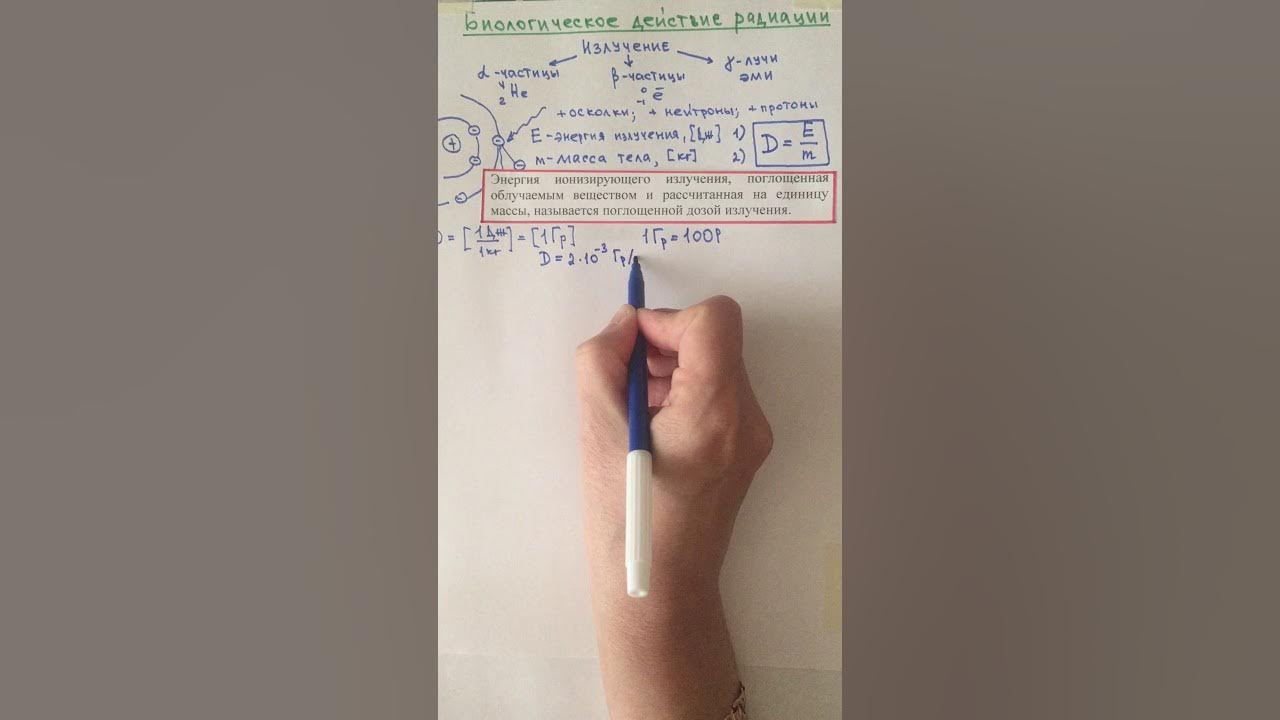 Биологическое действие радиации
Излучение
α-частицы β-частицы γ-лучи
⁴₂He ⁰₋₁ē эми
+осколки; + нейтроны; + протоны
E-энергия излучения, [Дж] 1) D = E/m
m-масса тела, [кг] 2)
Энергия ионизирующего излучения, поглощенная
облучаемым веществом и рассчитанная на единицу
массы, называется поглощенной дозой излучения.
D = [1Дж/1кг] = [1Гр] 1Гр = 100Р
D = 2·10⁻³ Гр/